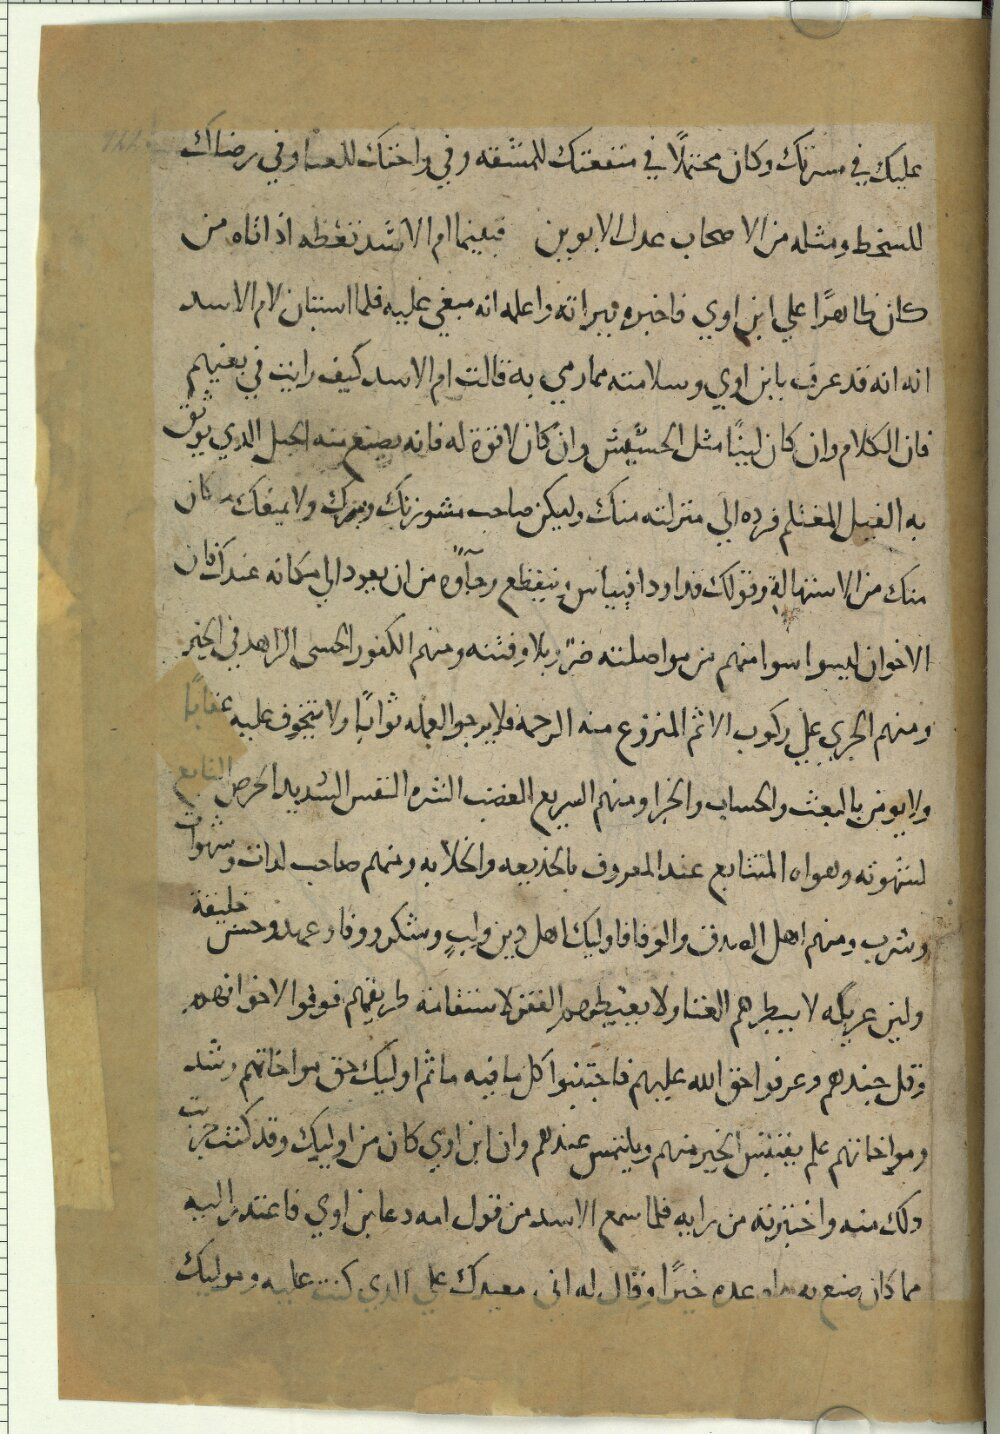 عليك في مسرتك وكان محتملًا في منفعتك للمشقه وفي راحتك للعنا وفي رضاك
للسخط ومثله من الاصحاب عدل الابوين فبينما ام الاسد تعظه اذ اتاه من
كان ظاهرًا علي ابن اوي فاخبره ببراته واعلمه انه مبغي عليه فلما استبان لام الاسد
انه انه قد عرف بابن اوي وسلامته مما رمي به قالت ام الاسد كيف رايت في بغيهم
فان الكلام وان كان لينًا مثل الحشيش وان كان لا قوة له فانه يصنع منه الحبل الدي يوثق
به الفيل المغتلم فرده الي منزلته منك وليكن صاحب مشورتك وسرك ولا يمنعك ما كان
منك من الاستهالة وقولك فييأس وينقطع رجآوه من ان يعود الي مكانه عندك فان
الاخوان ليسوا سوا منهم من مواصلته ضرر وبلا وفتنه ومنهم الكفور الزاهد في الخير
ومنهم الجري علي ركوب الاثم المنزوع منه الرحمه فلا يرجوا لعمله ثوابًا ولا يتخوف عليه عقابًا
ولا يومن بالبعث والحساب والجزا ومنهم السريع الغضب الشره النفس الشديد الحرص التابع
لشهوته وهواه المتتابع عند المعروف بالخديعه والخلابه ومنهم صاحب لدات وشهوات
وشرب ومنهم اهل الصدق والوفا فاوليك اهل دين ولب وشكر ووفا وعهد وحسن خليقة
ولين عريكه لا يبطرهم الغنا ولا الفقر لاستقامة طريقهم فوقوا الاخوانهم
وقل جندهم وعرفوا حق الله عليهم فاجتنبوا كل ما فيه ماثم اوليك حق مواخاتهم رشد
ومواخاتهم علم يقتبس الخير منهم ويلتمس عندهم وان ابن اوي كان من اوليك وقد كنت جربت
دلك منه واختبرته من رايه فلما سمع الاسد من قول امه دعا بابن اوي فاعتدر اليه
مما كان صنع به خيرًا وقال له اني معيدك علي الدي كنت عليه وموليك